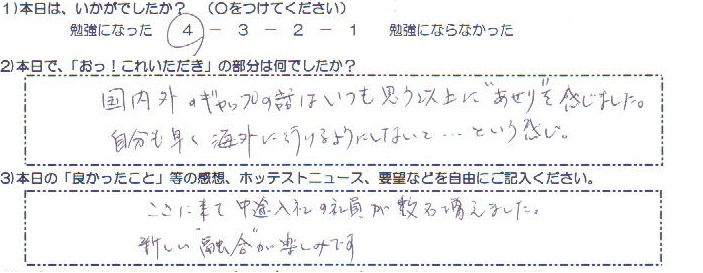 1)本日は、いかがでしたか？ （〇をつけてください）
勉強になった 4 － 3 － 2 － 1 勉強にならなかった
2)本日で、「おっ！これいただき」の部分は何でしたか？
国内外のギャップの話はいつも思う以上に"あせり"を感じました。
自分も早く海外に行けるようにしないと…という感じ。
3)本日の「良かったこと」等の感想、ホッテストニュース、要望などを自由にご記入ください。
ここに来て中途入社の社員が数名増えました。
新しい"融合"が楽しみです